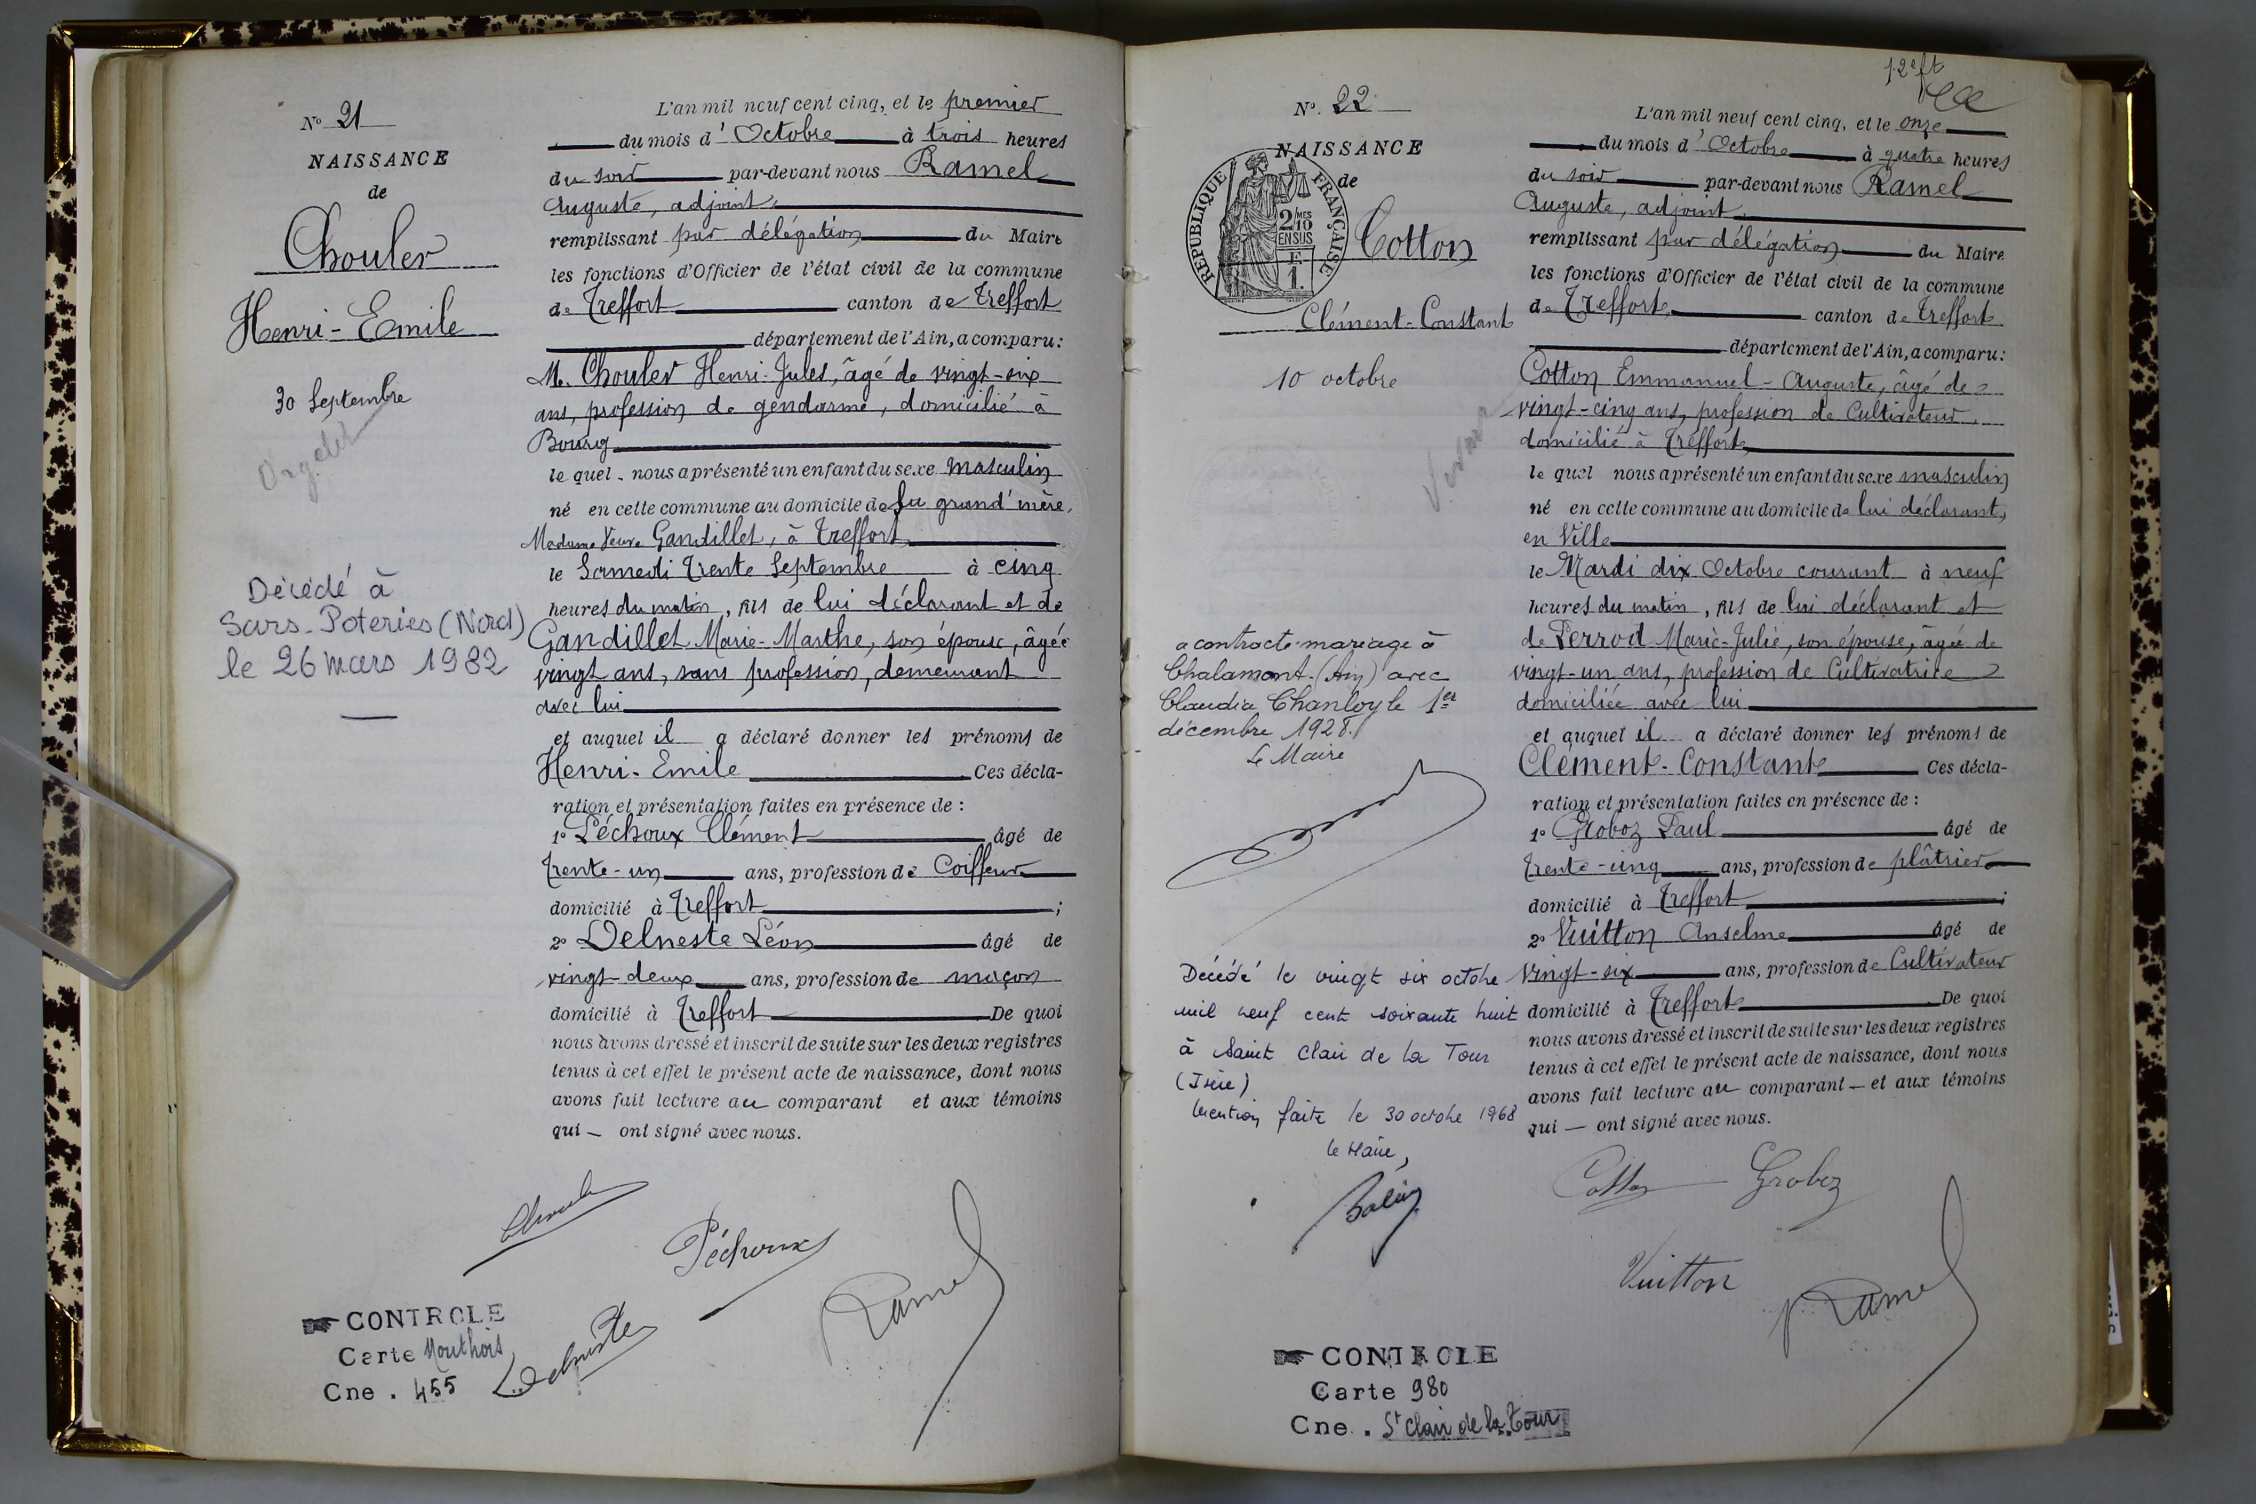 Nº 21
NAISSANCE
de
Chouler
Henri-Emile
30 Septembre
Orgelet
Décédé à
Sars-Poteries (Nord)
le 26 mars 1982
L'an mil neuf cent cinq, et le premier
du mois d'Octobre à trois heures
du soir par-devant nous Ramel
Auguste, adjoint,
remplissant par délégation du Maire
les fonctions d'Officier de l'état civil de la commune
de Treffort canton de Treffort
département de l'Ain, a comparu:
M. Chouler Henri-Jules, âgé de vingt-six
ans, profession de gendarme, domicilié à
Bourg
le quel nous a présenté un enfant du sexe masculin
né en cette commune au domicile de sa grand'mère,
Madame Veuve Gandillet, à Treffort
le Samedi trente Septembre à cinq
heures du matin, fils de lui déclarant et de
Gandillet Marie-Marthe, son épouse, âgée
vingt ans, sans profession, demeurant
avec lui
et auquel il a déclaré donner les prénoms de
Henri-Emile Ces décla-
ration et présentation faites en présence de :
1º Péchoux Clément âgé de
trente-un ans, profession de Coiffeur
domicilié à Treffort ;
2º Delneste Léon âgé de
vingt-deux ans, profession de maçon
domicilié à Treffort De quoi
nous avons dressé et inscrit de suite sur les deux registres
tenus à cet effet le présent acte de naissance, dont nous
avons fait lecture au comparant et aux témoins
qui — ont signé avec nous.
Chouler
Péchoux
Delneste
Ramel
CONTROLE
Carte Mouthois
Cne . 455
Nº 22
NAISSANCE
de
REPUBLIQUE FRANÇAISE
2/10MES
EN SUS
E.
1.
Cotton
Clément-Constant
10 octobre
a contracté mariage à
Chalamont (Ain) avec
Claudia Chanloy le 1er
décembre 1928.
Le Maire
Décédé le vingt six octobre
mil neuf cent soixante huit
à Saint Clair de la Tour
(Isère)
Mention faite le 30 octobre 1968
le Maire,
L'an mil neuf cent cinq, et le onze
du mois d'Octobre à quatre heures
du soir par-devant nous Ramel
Auguste, adjoint,
remplissant par délégation du Maire
les fonctions d'Officier de l'état civil de la commune
de Treffort, canton de Treffort
département de l'Ain, a comparu:
Cotton Emmanuel-Auguste, âgé de
vingt-cinq ans, profession de Cultivateur,
domicilié à Treffort,
le quel nous a présenté un enfant du sexe masculin
né en cette commune au domicile de lui déclarant,
en Ville
le Mardi dix Octobre courant à neuf
heures du matin, fils de lui déclarant et
de Perrod Marie-Julie, son épouse, âgée de
vingt-un ans, profession de Cultivatrice
domiciliée avec lui
et auquel il a déclaré donner les prénoms de
Clément-Constant Ces décla-
ration et présentation faites en présence de :
1º Groboz Paul âgé de
trente-cinq ans, profession de plâtrier
domicilié à Treffort ;
2º Vuitton Anselme âgé de
vingt-six ans, profession de Cultivateur
domicilié à Treffort De quoi
nous avons dressé et inscrit de suite sur les deux registres
tenus à cet effet le présent acte de naissance, dont nous
avons fait lecture au comparant — et aux témoins
qui — ont signé avec nous.
Cotton
Groboz
Vuitton
Ramel
CONTROLE
Carte 980
Cne . St Clair de la Tour